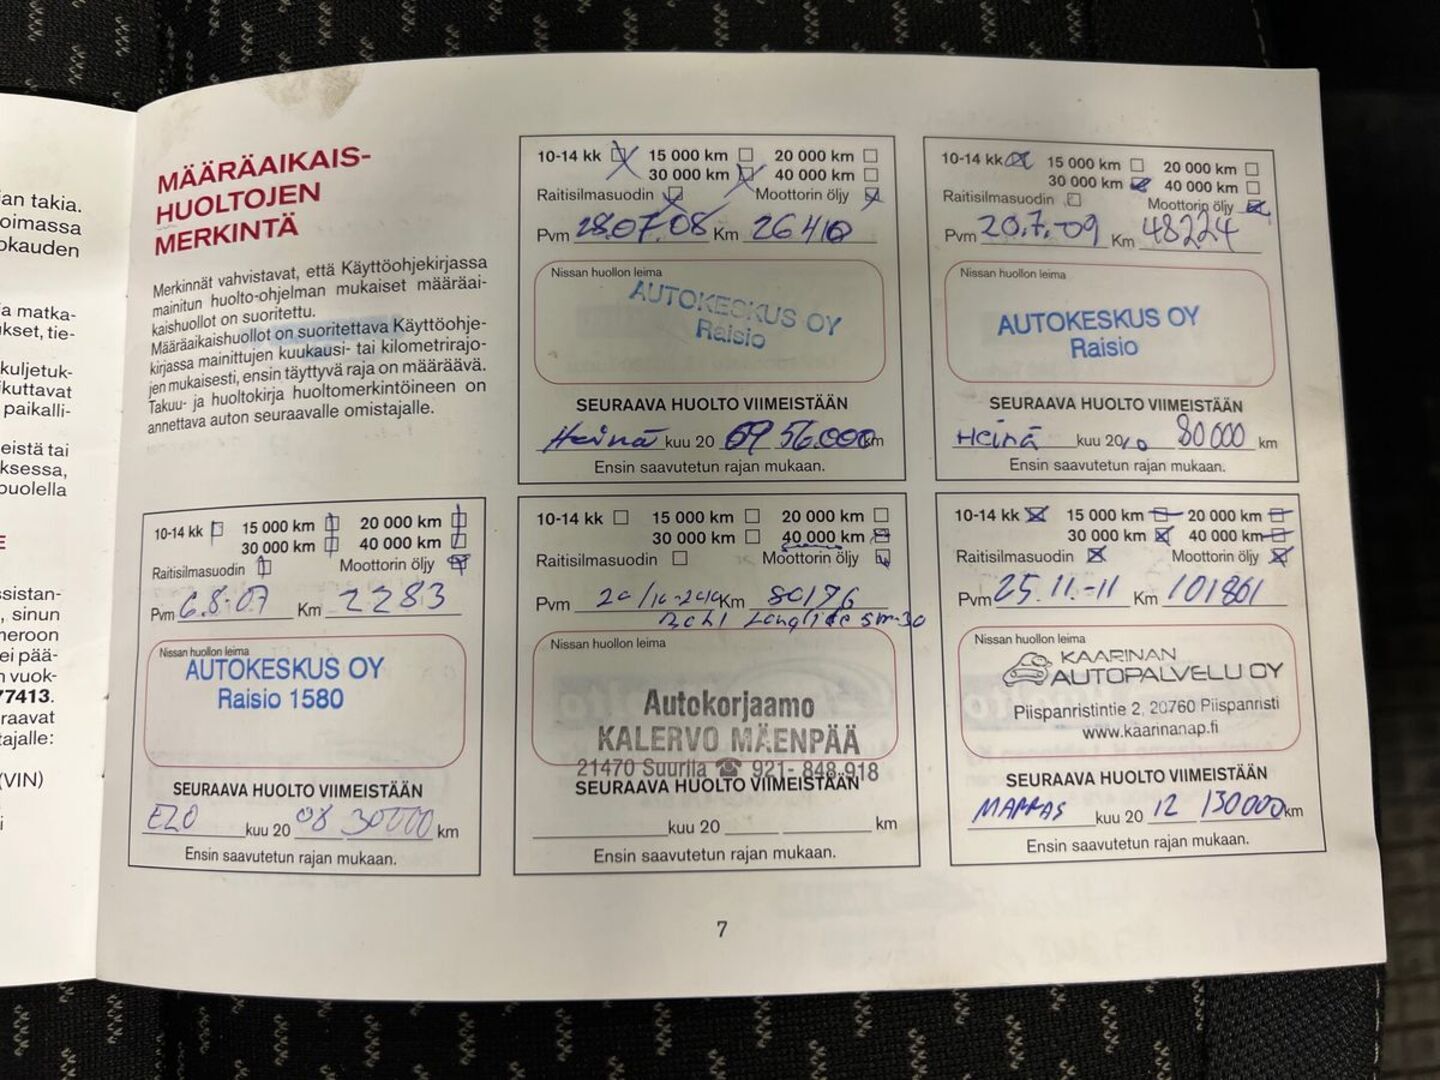 jan takia.
oimassa
okauden
a matka-
ukset, tie-
kuljetuk-
ikuttavat
paikalli-
eistä tai
ksessa,
puolella
E
ssistan-
, sinun
neroon
ei pää-
n vuok-
77413.
raavat
tajalle:
(VIN)
i
MÄÄRÄAIKAIS-
HUOLTOJEN
MERKINTÄ
Merkinnät vahvistavat, että Käyttöohjekirjassa
mainitun huolto-ohjelman mukaiset määräai-
kaishuollot on suoritettu.
Määräaikaishuollot on suoritettava Käyttöohje-
kirjassa mainittujen kuukausi- tai kilometrirajo-
jen mukaisesti, ensin täyttyvä raja on määräävä.
Takuu- ja huoltokirja huoltomerkintöineen on
annettava auton seuraavalle omistajalle.
10-14 kk 15 000 km 20 000 km
30 000 km 40 000 km
Raitisilmasuodin Moottorin öljy
Pvm 6.8-07 Km 2283
Nissan huollon leima
AUTOKESKUS OY
Raisio 1580
SEURAAVA HUOLTO VIIMEISTÄÄN
ELO kuu 20 08 30000 km
Ensin saavutetun rajan mukaan.
10-14 kk 15 000 km 20 000 km
30 000 km 40 000 km
Raitisilmasuodin Moottorin öljy
Pvm 28.07.08 Km 26410
Nissan huollon leima
AUTOKESKUS OY
Raisio
SEURAAVA HUOLTO VIIMEISTÄÄN
Heinä kuu 20 09 56.000 km
Ensin saavutetun rajan mukaan.
10-14 kk 15 000 km 20 000 km
30 000 km 40 000 km
Raitisilmasuodin Moottorin öljy
Pvm 20.7.-09 Km 48224
Nissan huollon leima
AUTOKESKUS OY
Raisio
SEURAAVA HUOLTO VIIMEISTÄÄN
Heinä kuu 20 10 80000 km
Ensin saavutetun rajan mukaan.
10-14 kk 15 000 km 20 000 km
30 000 km 40 000 km
Raitisilmasuodin Moottorin öljy
Pvm Km 80176
5w-30
Nissan huollon leima
Autokorjaamo
KALERVO MÄENPÄÄ
21470 Suurila ☎ 921-848 918
SEURAAVA HUOLTO VIIMEISTÄÄN
kuu 20 km
Ensin saavutetun rajan mukaan.
10-14 kk 15 000 km 20 000 km
30 000 km 40 000 km
Raitisilmasuodin Moottorin öljy
Pvm 25.11.-11 Km 101861
Nissan huollon leima
KAARINAN
AUTOPALVELU OY
Piispanristintie 2, 20760 Piispanristi
www.kaarinanap.fi
SEURAAVA HUOLTO VIIMEISTÄÄN
MARRAS kuu 20 12 130000 km
Ensin saavutetun rajan mukaan.
7